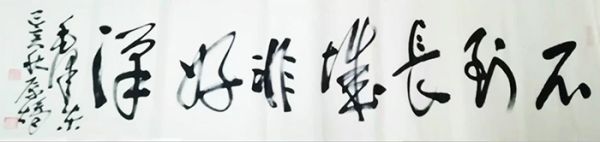 不到長城非好漢
毛澤東